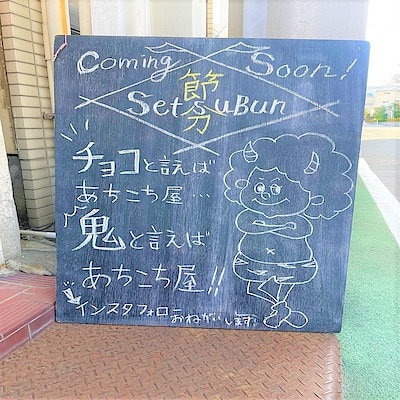 Coming Soon!
節分
SetsuBun
チョコと言えば
あちこち屋…
鬼と言えば
あちこち屋!!
インスタフォローおねがいします